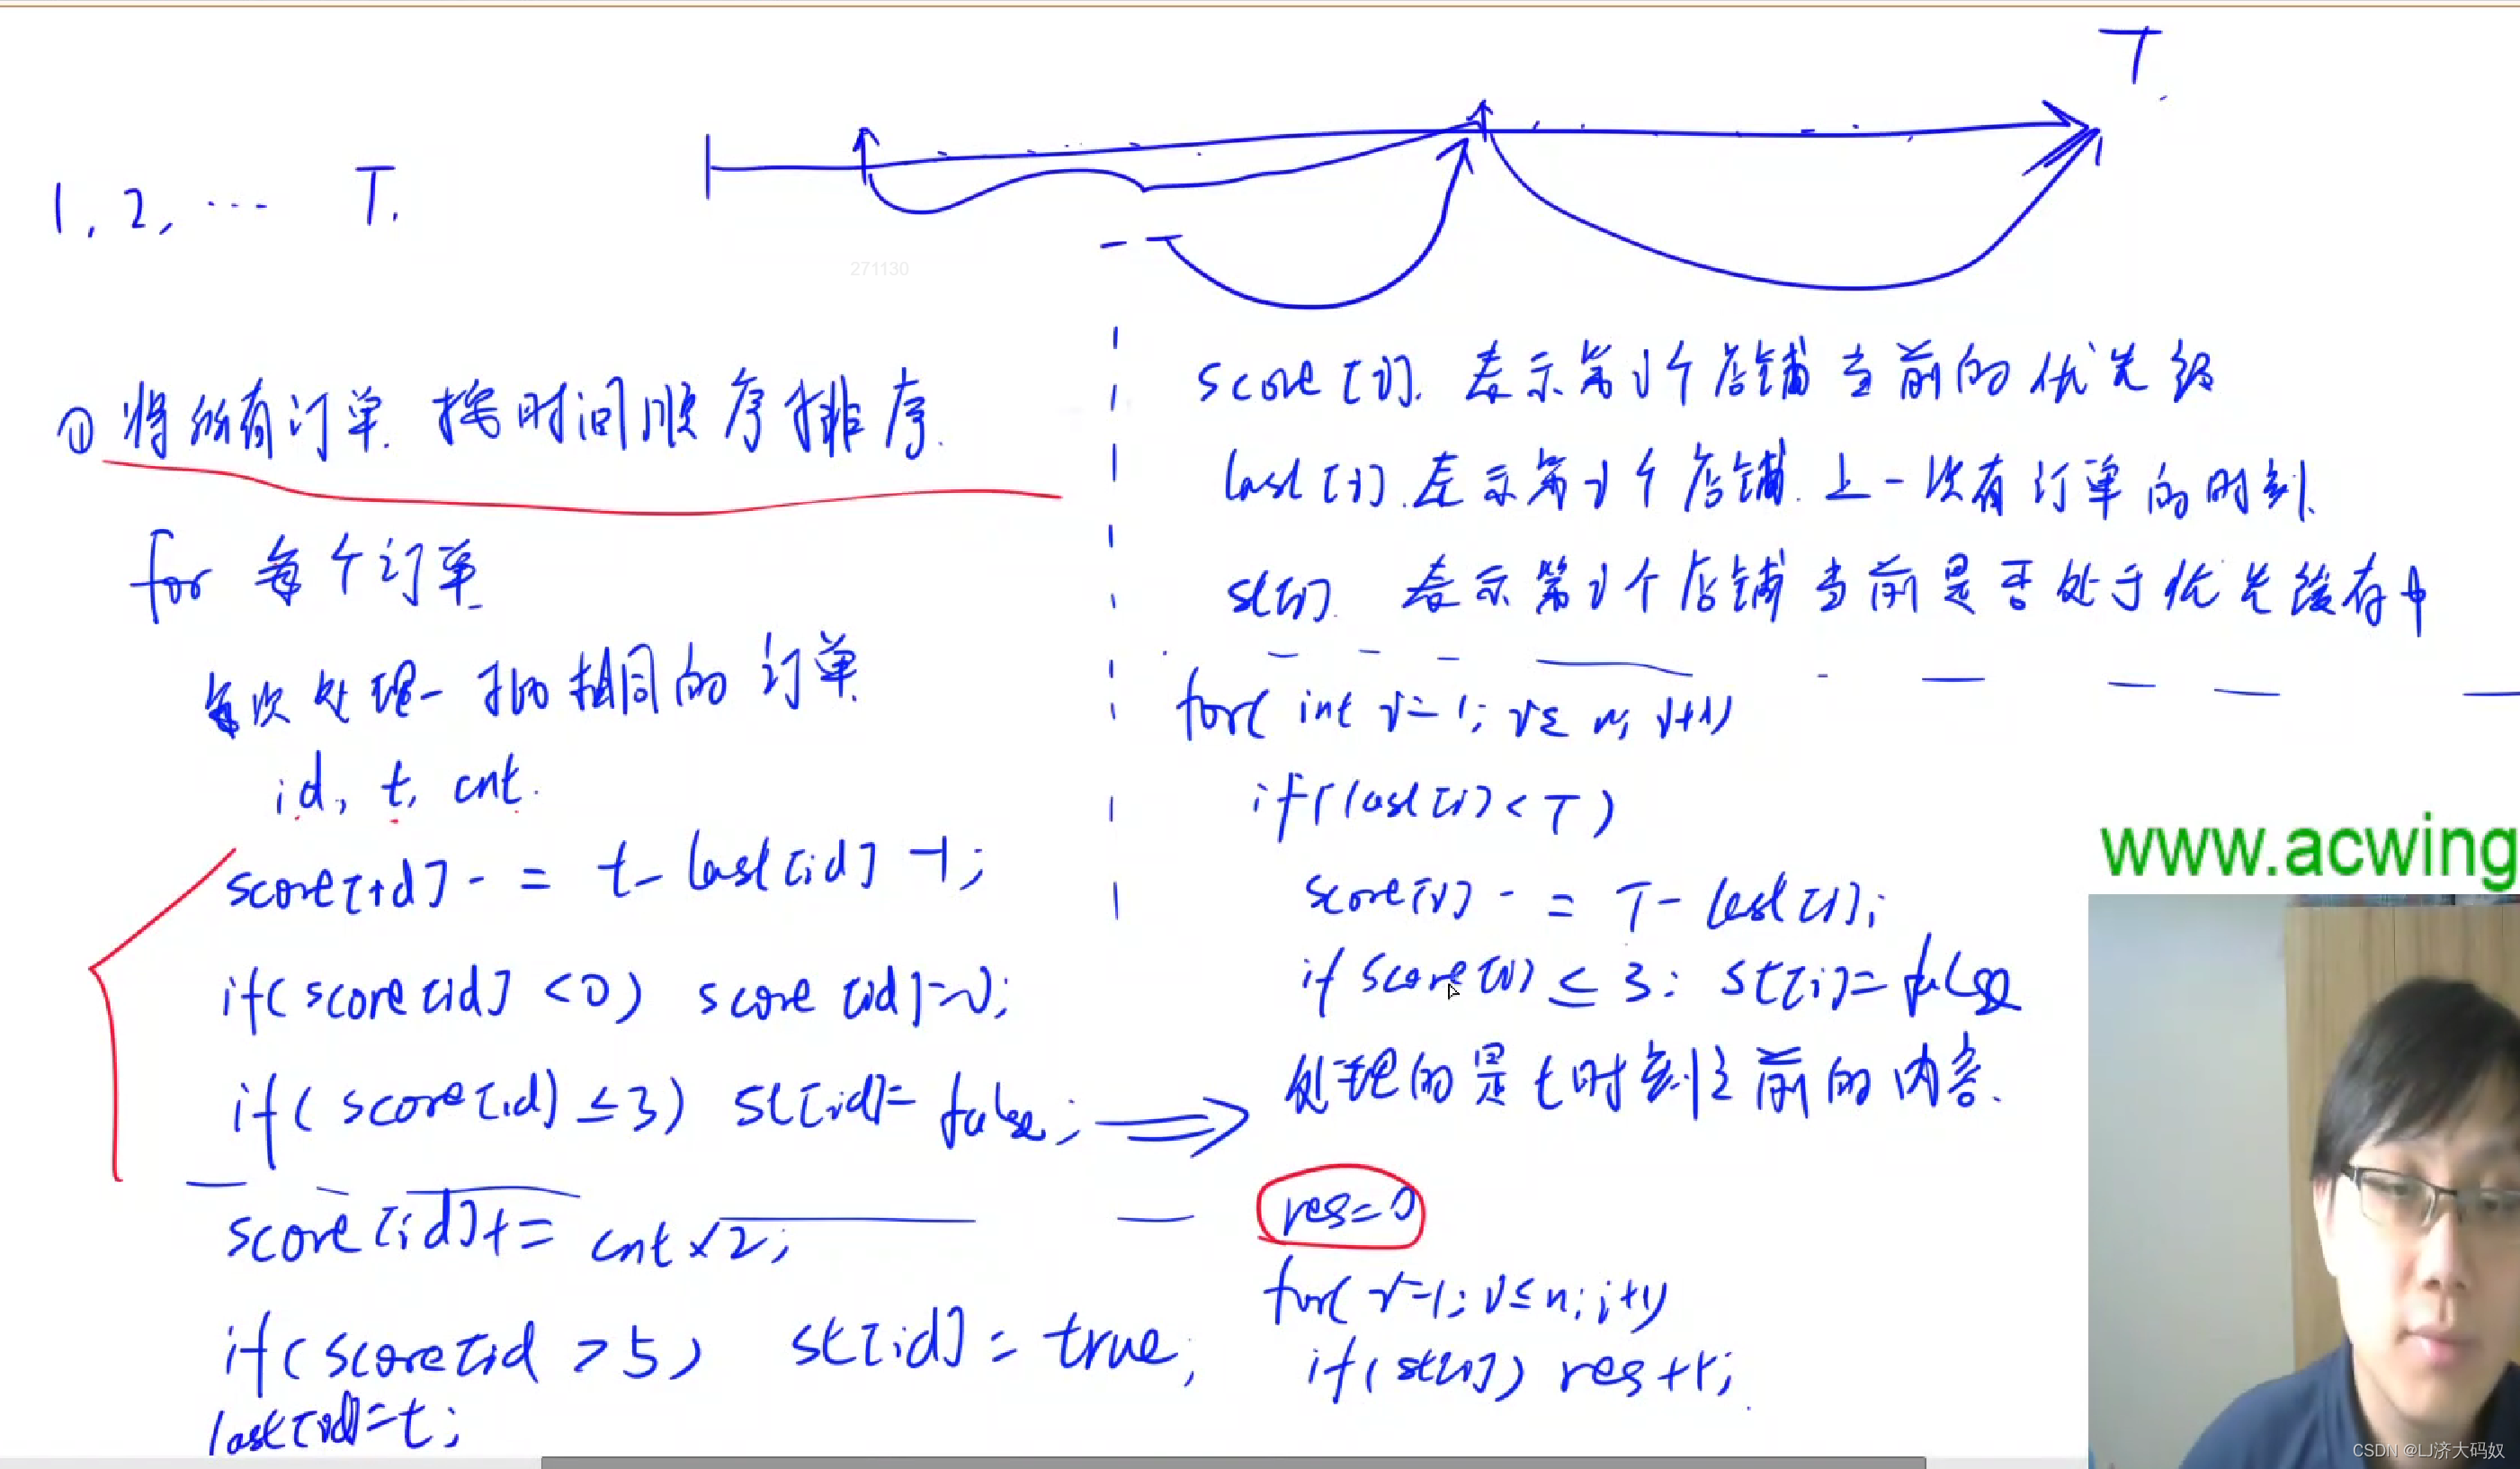 T.
1, 2, ... T.
271130
① 将所有订单 按时间顺序排序.
for 每个订单
每次处理一批相同的订单
id, t, cnt.
score[id] -= t - last[id] - 1;
if( score[id] < 0 ) score[id] = 0;
if( score[id] ≤ 3 ) st[id] = false;
score[id] += cnt × 2;
if( score[id > 5 ) st[id] = true;
last[id] = t;
score[i]. 表示第i个店铺当前的优先级
last[i]. 表示第i个店铺. 上一次有订单的时刻.
st[i]. 表示第i个店铺当前是否处于优先缓存中
for( int i=1; i≤n; i++)
if( last[i] < T )
score[i] -= T - last[i];
if score[i] ≤ 3: st[i] = false
处理的是t时刻之前的内容.
res=0
for( i=1; i≤n; i++)
if( st[i] ) res++;
www.acwing
CSDN @LJ济大码奴